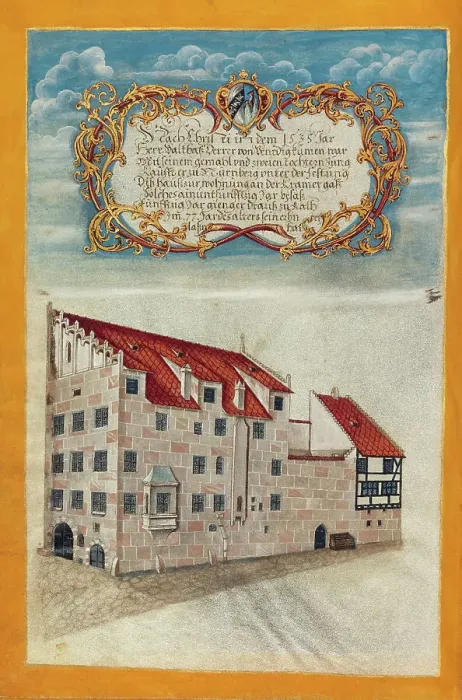 Nach dem 1535 Jar
Herr Balthas Derrer von Venedig kumen war
Mit seinem gemahl vnd zweien tochtern Jung
Kaufft er zu Nürnberg vnter der Festung
Diß hauß zur wohnung an der Kramer gaß
Solches ain funfftzig Jar besaß
Funftzig Jar gienger drauß zu Rath
Im 77 Jar des alters sein